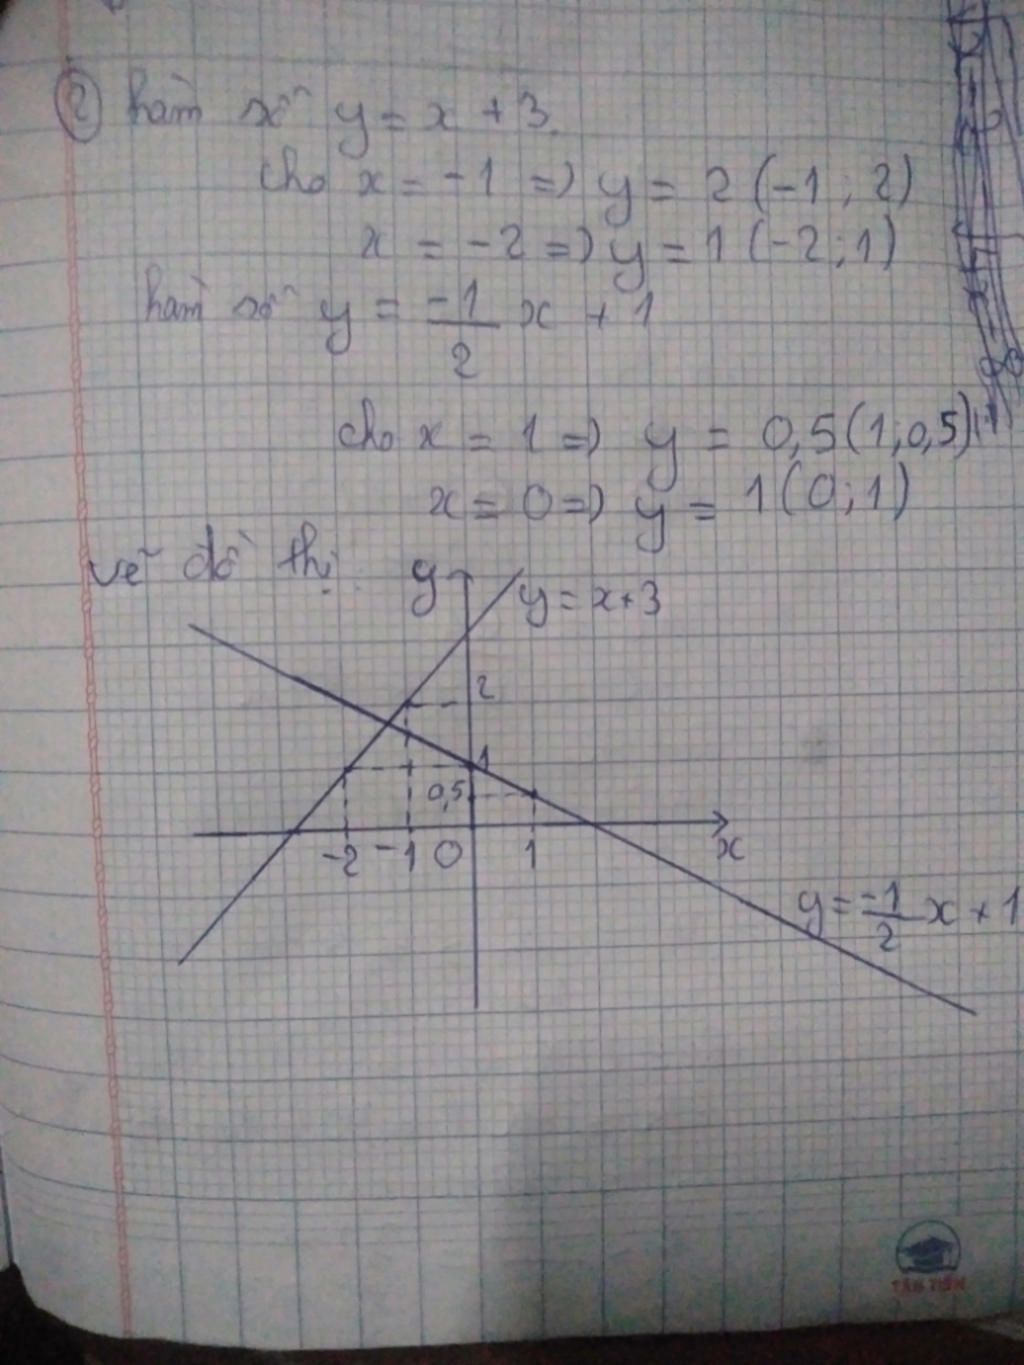 ② hàm số y = x + 3
cho x = -1 => y = 2 (-1; 2)
x = -2 => y = 1 (-2; 1)
hàm số y = -1/2 x + 1
cho x = 1 => y = 0,5 (1; 0,5)
x = 0 => y = 1 (0; 1)
vẽ đồ thị
y
y = x + 3
2
1
0,5
-2 -1 0 1 x
y = -1/2 x + 1
TÂN TIẾN